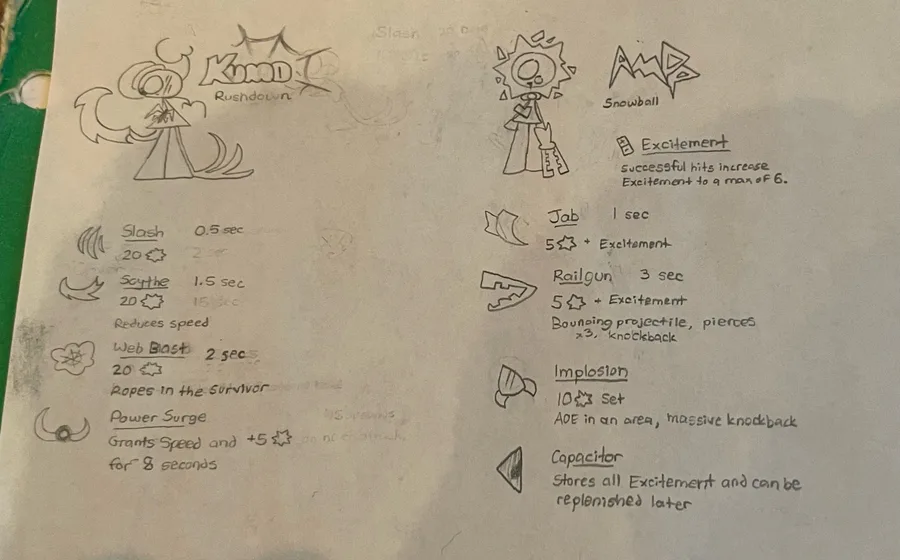 KUMO
Rushdown
Slash 0.5 sec
20
Scythe 1.5 sec
20
Reduces speed
Web Blast 2 secs
20
Ropes in the survivor
Power Surge
Grants Speed and +5
for 8 seconds
AMP
Snowball
Excitement
successful hits increase
Excitement to a max of 6.
Jab 1 sec
5 + Excitement
Railgun 3 sec
5 + Excitement
Bouncing projectile, pierces
x3, knockback
Implosion
10 Set
AOE in an area, massive knockback
Capacitor
Stores all Excitement and can be
replenished later